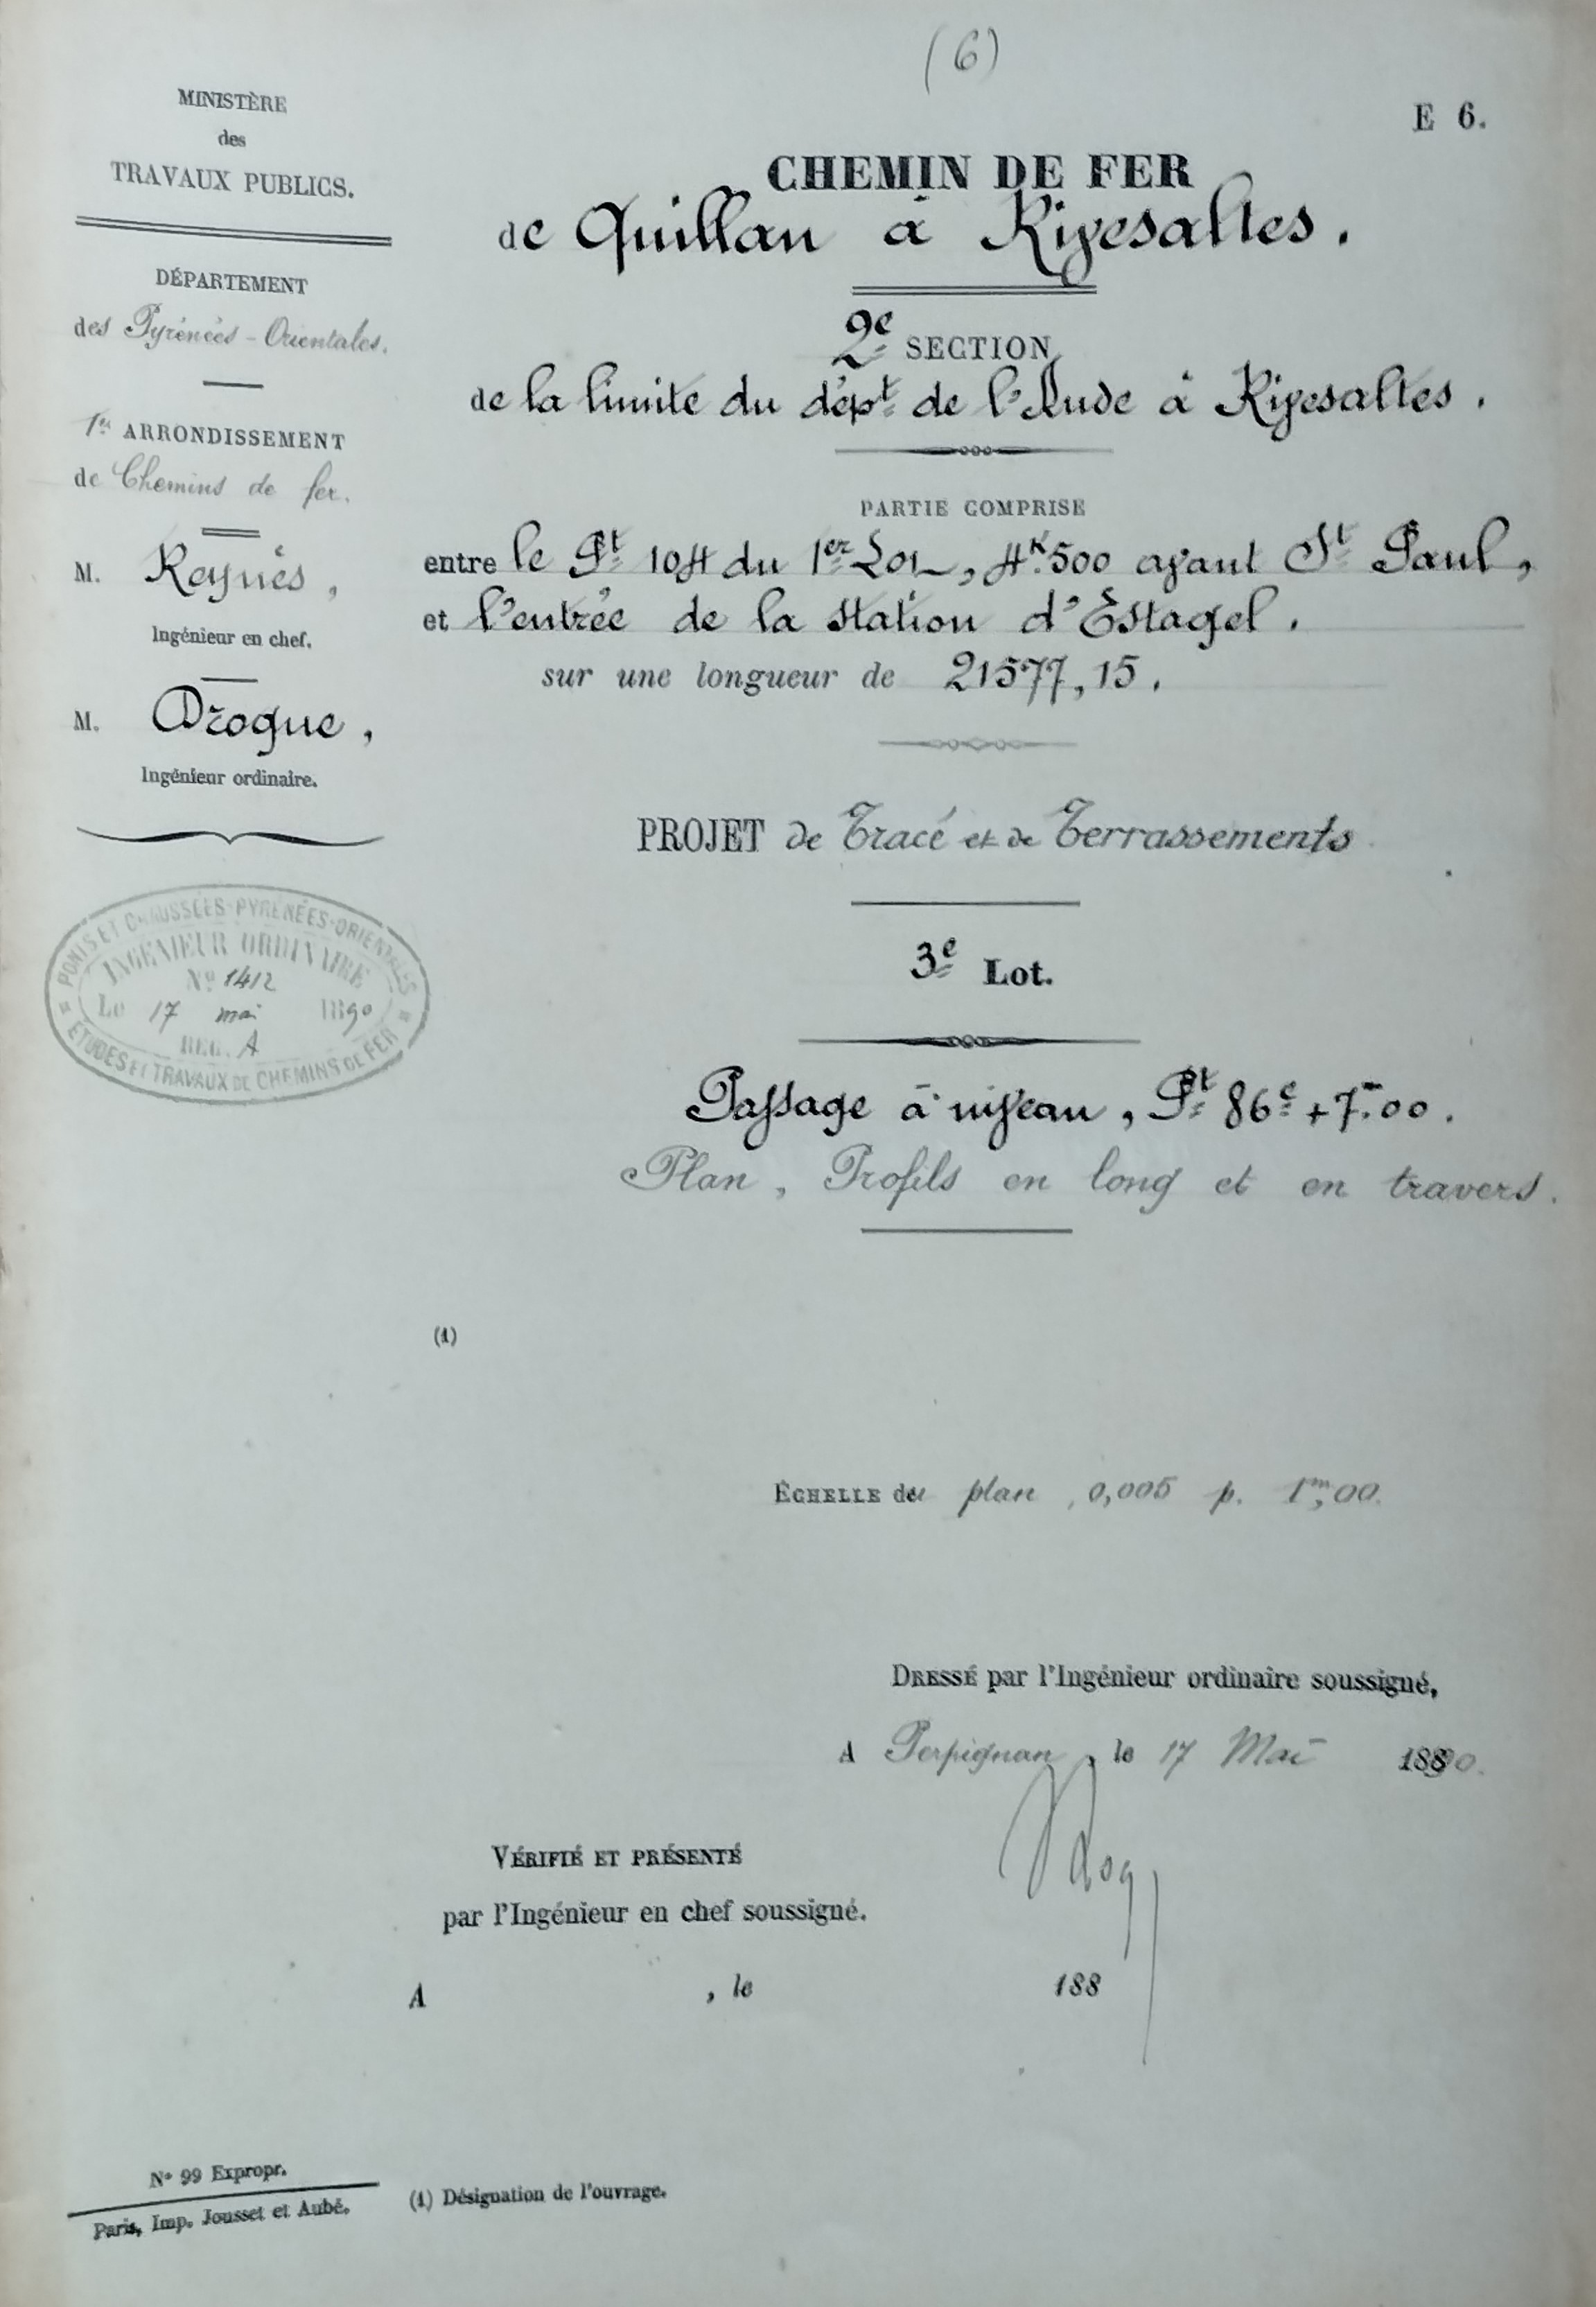 (6)
E 6.
MINISTÈRE
des
TRAVAUX PUBLICS.
DÉPARTEMENT
des Pyrénées-Orientales.
1er ARRONDISSEMENT
de Chemins de fer.
M. Reynès,
Ingénieur en chef.
M. Drogue,
Ingénieur ordinaire.
PONTS ET CHAUSSÉES-PYRÉNÉES-ORIENTALES
INGÉNIEUR ORDINAIRE
No 1412
Le 17 mai 1890
REG. A
ÉTUDES ET TRAVAUX DE CHEMINS DE FER
CHEMIN DE FER
de Quillan à Rivesaltes.
2e SECTION
de la limite du dépt de l'Aude à Rivesaltes.
PARTIE COMPRISE
entre le Pt 104 du 1er Lot, 4k500 avant St Paul,
et l'entrée de la station d'Estagel.
sur une longueur de 21577,15.
PROJET de Tracé et de Terrassements
3e Lot.
Passage à niveau, Pt 86e + 7m00.
Plan, Profils en long et en travers.
(1)
ÉCHELLE du plan, 0,005 p. 1m,00.
DRESSÉ par l'Ingénieur ordinaire soussigné,
A Perpignan, le 17 Mai 1890.
VÉRIFIÉ ET PRÉSENTÉ
par l'Ingénieur en chef soussigné.
A , le 188
No 99 Expropr.
Paris, Imp. Jousset et Aubé.
(1) Désignation de l'ouvrage.